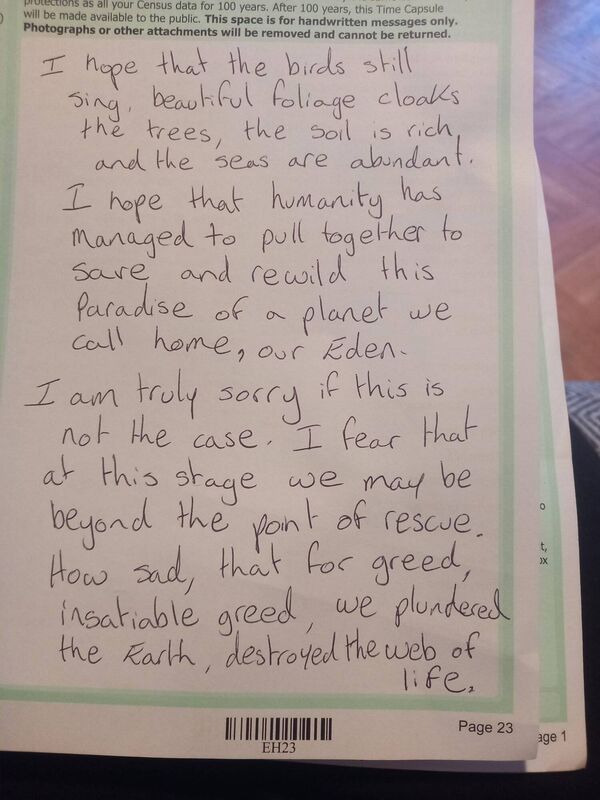 protections as all your Census data for 100 years. After 100 years, this Time Capsule
will be made available to the public. This space is for handwritten messages only.
Photographs or other attachments will be removed and cannot be returned.
I hope that the birds still
sing, beautiful foliage cloaks
the trees, the soil is rich
and the seas are abundant.
I hope that humanity has
managed to pull together to
save and rewild this
Paradise of a planet we
call home, our Eden.
I am truly sorry if this is
not the case. I fear that
at this stage we may be
beyond the point of rescue.
How sad, that for greed,
insatiable greed, we plundered
the Earth, destroyed the web of
life.
EH23
Page 23
age 1
o
t,
ox